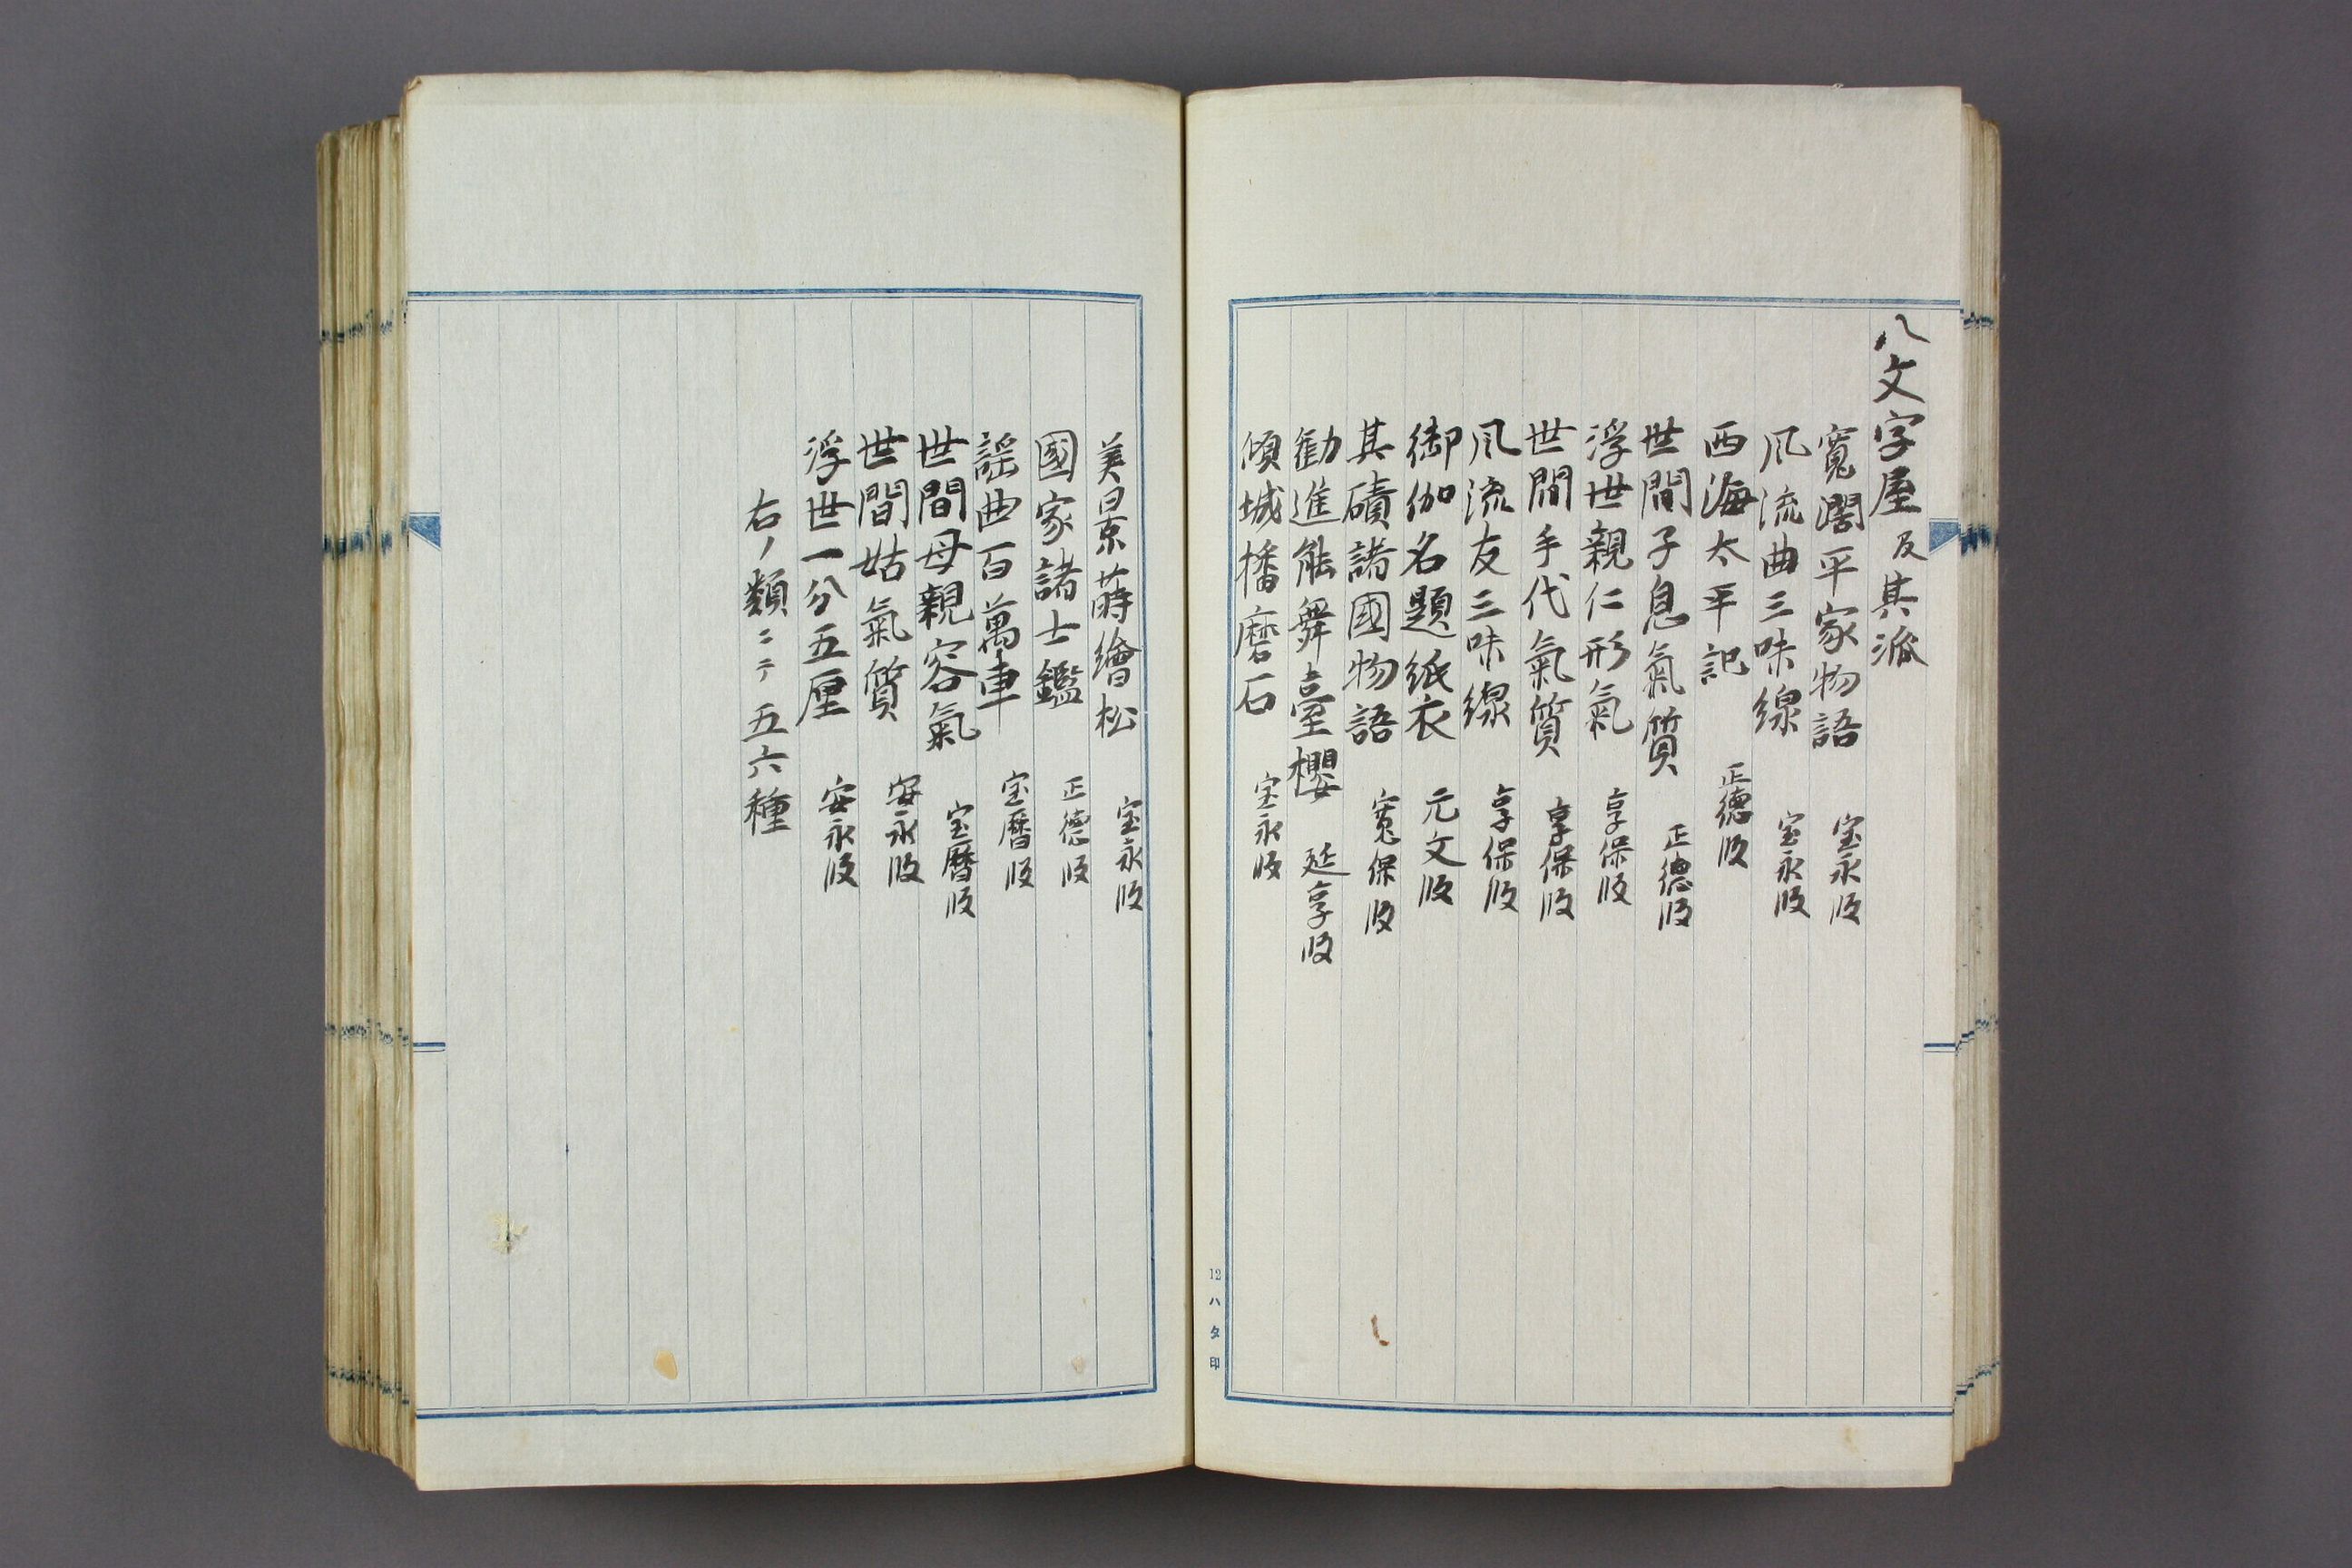 八文字屋及其派
寛濶平家物語 宝永版
風流曲三味線 宝永版
西海太平記 正德版
世間子息氣質 正德版
浮世親仁形氣 享保版
世間手代氣質 享保版
風流友三味線 享保版
御伽名題紙衣 元文版
其磧諸國物語 寛保版
勧進能舞臺櫻 延享版
傾城播磨石 宝永版
12ハタ印
美景蒔繪松 宝永版
國家諸士鑑 正德版
謡曲百萬車 宝暦版
世間母親容氣 宝暦版
世間姑氣質 安永版
浮世一分五厘 安永版
右ノ類ニテ五六種